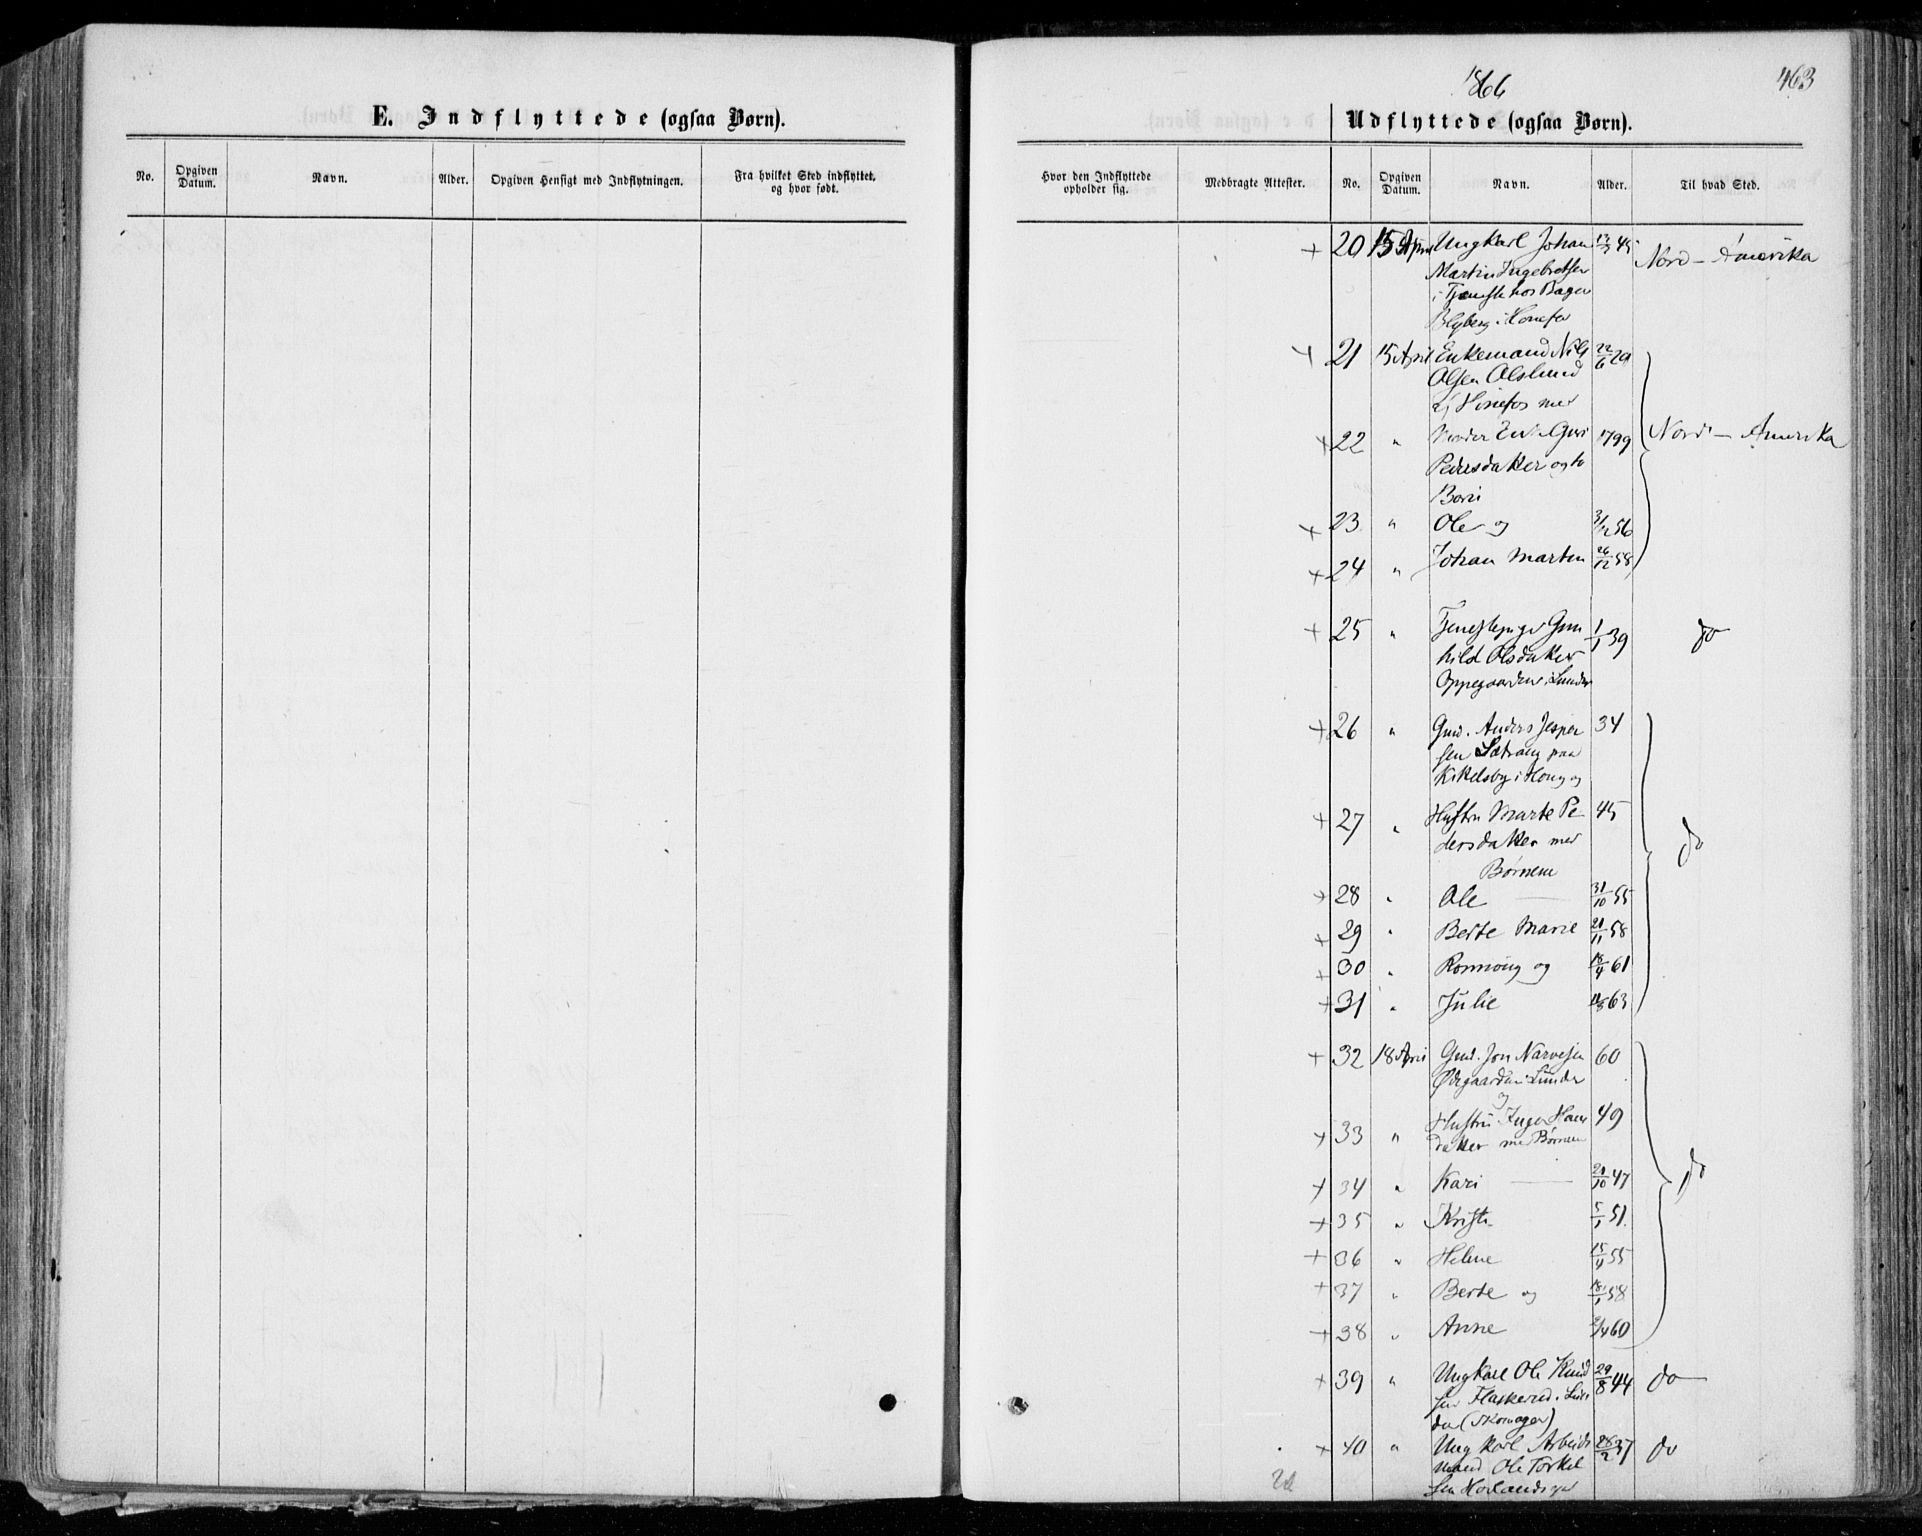 E. Indflyttede (ogsaa Børn).
No.
Opgiven Datum.
Navn.
Alder.
Opgiven Hensigt med Indflytningen.
Fra hvilket Sted indflyttet, og hvor født.
1866
463
Udflyttede (ogsaa Børn).
Hvor den Indflyttede opholder sig.
Medbragte Attester.
No.
Opgiven Datum.
Navn.
Alder.
Til hvad Sted.
+ 20 15 April Ungkarl Johan 45 Nord-Amerika
Martin Ingebretsen
i Tjeneste hos Bager
Blyberg i Hønefos
+ 21 15 April Enkemand Nils 22/6 29
Olsen Olslund
af Hønefos med
+ 22 " Moder Enke Guri 1799 Nord-Amerika
Pedersdatter og to
Børn
+ 23 " Ole og 56
+ 24 " Johan Martin 26/12 58
+ 25 " Tjenestepige Gun 1/1 39 do
hild Olsdatter
Oppegaarden i Lunder
+ 26 " Gmd. Anders Jesper 34
sen Sætrang paa
Kikelsby i Houg og
+ 27 " Hustru Marte Pe 45 do
dersdatter med
Børnene
+ 28 " Ole 31/10 55
+ 29 " Berte Marie 21/11 58
+ 30 " Rønnoug og 18/4 61
+ 31 " Julie 63
+ 32 18 April Gmd. Jon Narvesen 60
Ødegaarden i Lunder
og
+ 33 " Hustru Inger Hans 49
datter med Børnene
+ 34 " Kari 21/10 47 do
+ 35 " Kristi 5/1 51.
+ 36 " Helene 15/4 55
+ 37 " Berte og 18/1 58
+ 38 " Anne 2/4 60
+ 39 " Ungkarl Ole Knud 29/8 44 do
sen Flaskerud i Lun
der (Skomager)
+ 40 " Ungkarl Arbeids 28/2 37 do
mand Ole Torkel
sen